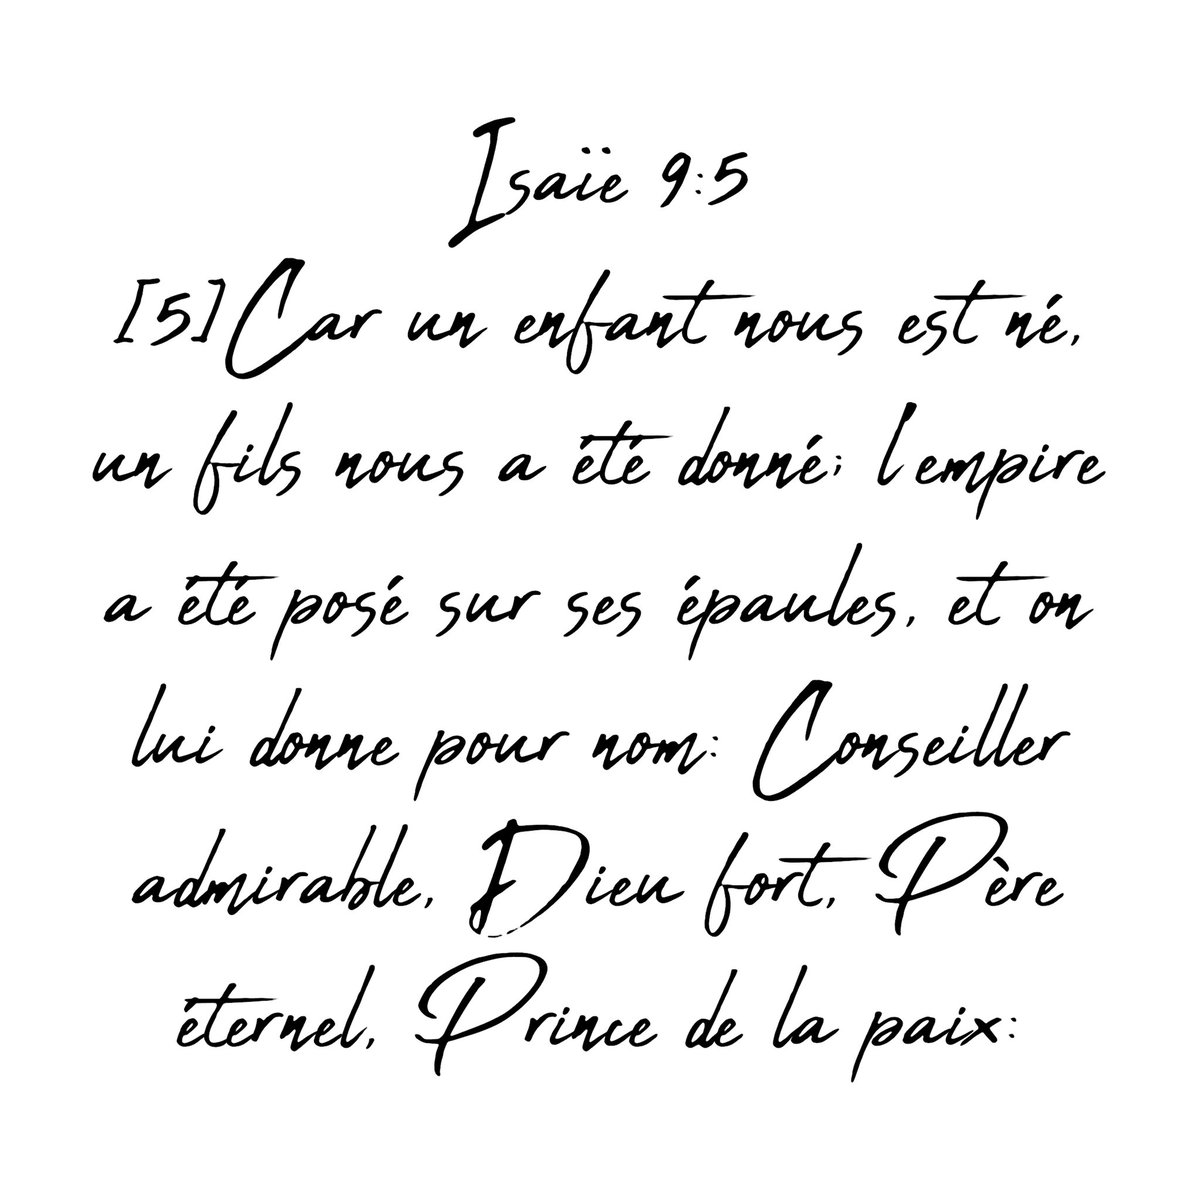 Isaïe 9:5
[5]Car un enfant nous est né,
un fils nous a été donné; l'empire
a été posé sur ses épaules, et on
lui donne pour nom: Conseiller
admirable, Dieu fort, Père
éternel, Prince de la paix: